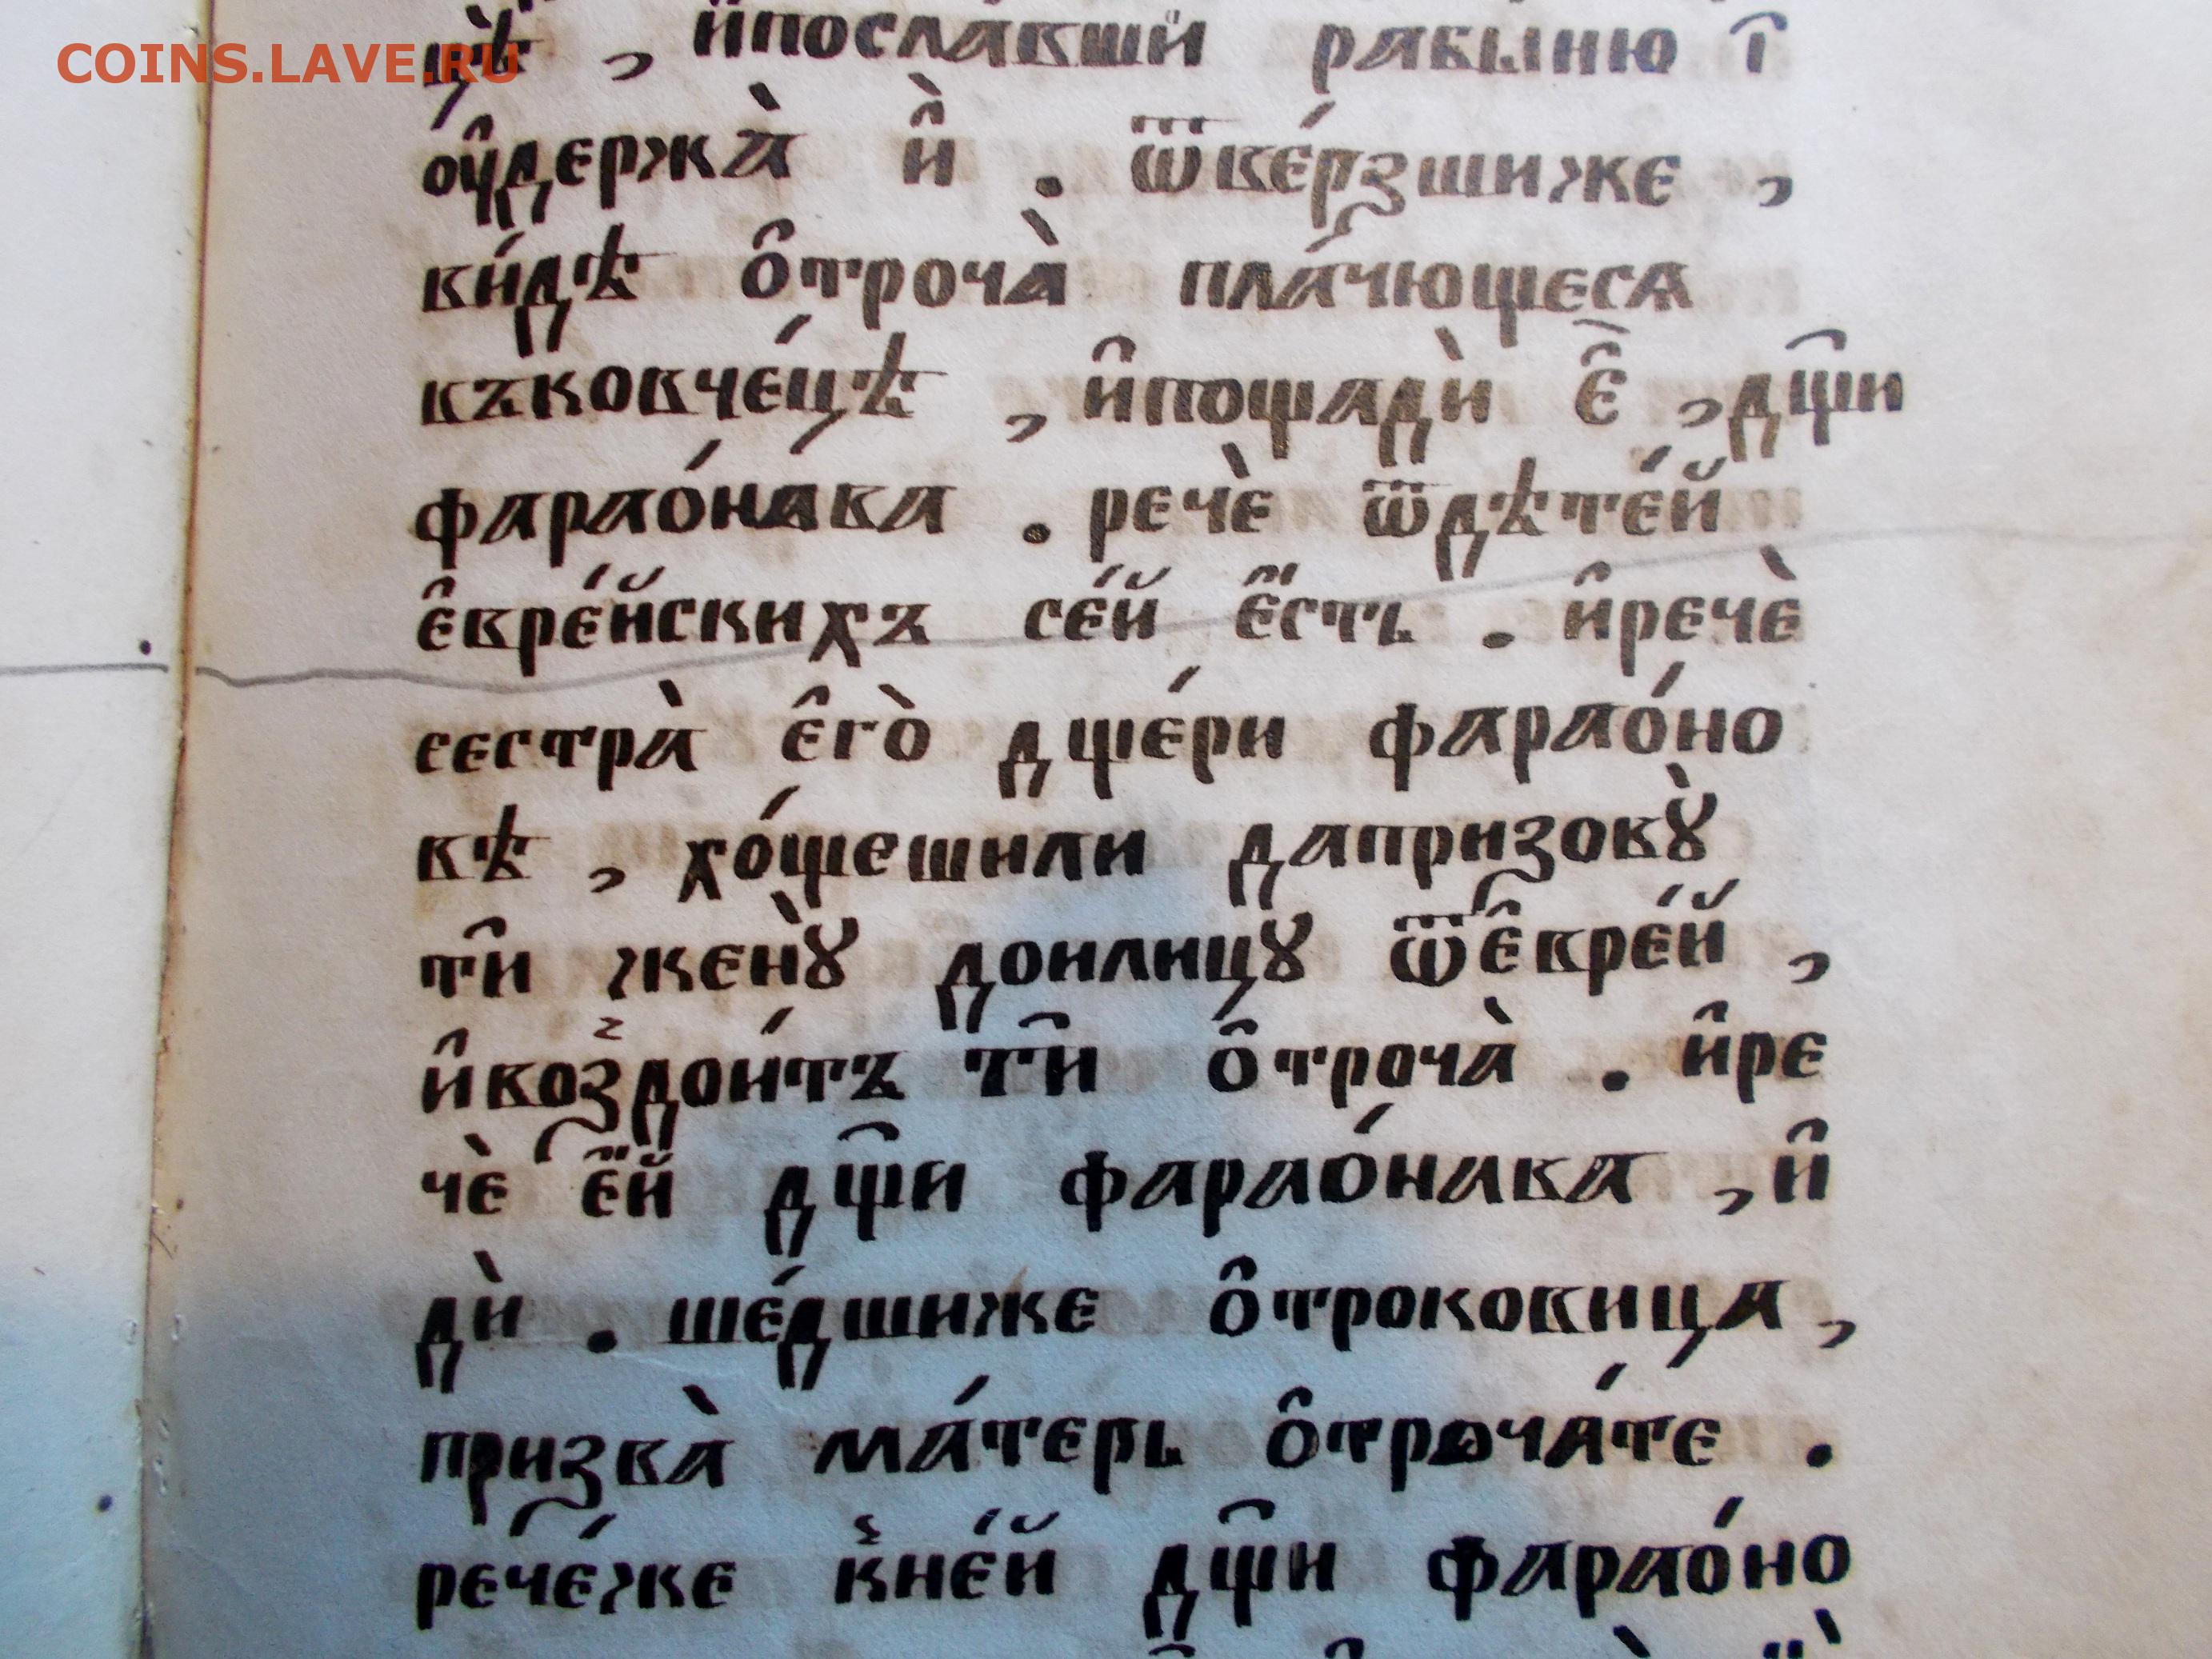 COINS.LAVE.RU
цѣ , и҆посла́вши рабы́ню і҆
оу҆держа̀ и҆̀ . ѿве́рзшиже ,
ви́дѣ ѻ҆троча̀ пла́чющеся
въковче́цѣ , и҆пощадѝ є҆̀ , дщ҃и
фарао́нава . речѐ ѿдѣте́й
є҆вре́йскихъ се́й є҆́сть . и҆речѐ
сестра̀ є҆гѡ̀ дще́ри фарао́но
вѣ , хо́щешили дапризовꙋ̀
тѝ женꙋ̀ доилицꙋ ѿє҆вре́й ,
и҆воз̾дои́тъ тѝ ѻ҆троча̀ . и҆ре
чѐ є҆́й дщ҃и фарао́нава , и҆
дѝ . ше́дшиже ѻ҆троковица ,
призва̀ ма́терь ѻ҆троча́те .
рече́же к̾не́й дщ҃и фарао́но